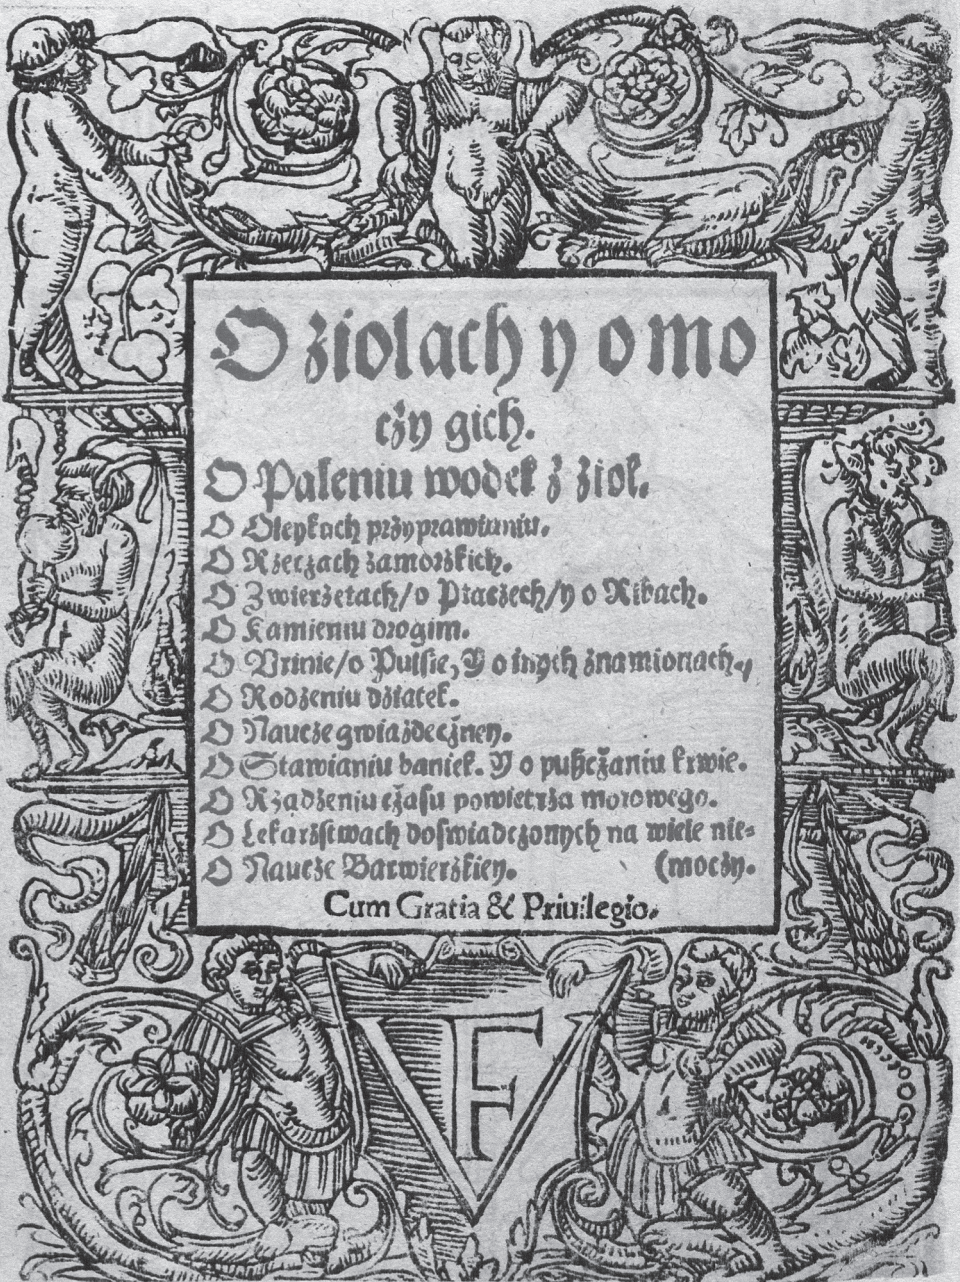 O ziolach y o mo
cży gich.
O Paleniu wodek z ziol.
O Oleykach przyprawianiu.
O Rzeczach zamorskich.
O Zwierzetach/o Ptaszech/y o Ribach.
O Kamieniu drogim.
O Vrinie/o Pulsie, Y o inych znamionach.
O Rodzeniu dziatek.
O Naucze gwiazdecżney.
O Stawianiu baniek. Y o pußcżaniu krwie.
O Rządzeniu cżasu powietrza morowego.
O Lekarzstwach doswiadczonych na wiele nie=
O Naucze Barwierskiey. (moczy.
Cum Gratia & Priuilegio.
VF